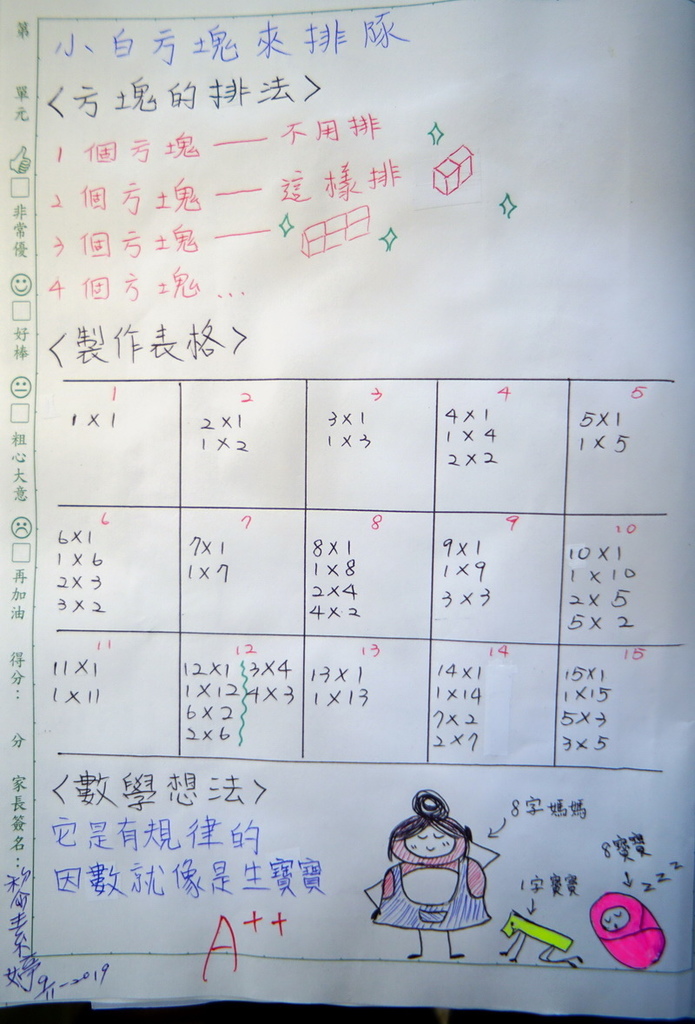 小白方塊來排隊
<方塊的排法>
1個方塊——不用排
2個方塊——這樣排
3個方塊——
4個方塊...
<製作表格>
1 2 3 4 5
1×1
2×1
1×2
3×1
1×3
4×1
1×4
2×2
5×1
1×5
6 7 8 9 10
6×1
1×6
2×3
3×2
7×1
1×7
8×1
1×8
2×4
4×2
9×1
1×9
3×3
10×1
1×10
2×5
5×2
11 12 13 14 15
11×1
1×11
12×1 3×4
1×12 4×3
6×2
2×6
13×1
1×13
14×1
1×14
7×2
2×7
15×1
1×15
5×3
3×5
<數學想法>
它是有規律的
因數就像是生寶寶
8字媽媽
1字寶寶
8寶寶
zzz
A++
第 單元
非常優
好棒
粗心大意
再加油
得分: 分
家長簽名:
9/11-2019